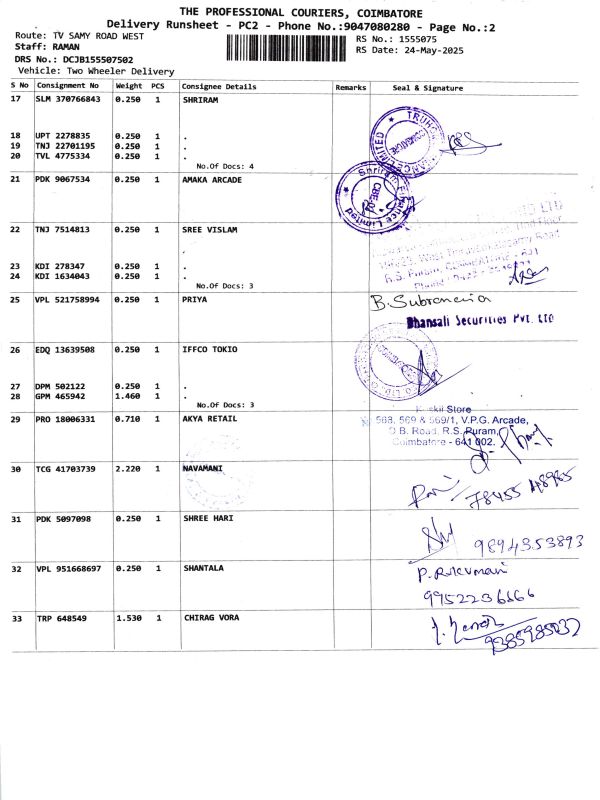 THE PROFESSIONAL COURIERS, COIMBATORE
Delivery Runsheet - PC2 - Phone No.:9047080280 - Page No.:2
Route: TV SAMY ROAD WEST
RS No.: 1555075
Staff: RAMAN
RS Date: 24-May-2025
DRS No.: DCJB155507502
Vehicle: Two Wheeler Delivery
S No Consignment No Weight PCS Consignee Details Remarks Seal & Signature
17 SLM 370766843 0.250 1 SHRIRAM
18 UPT 2278835 0.250 1 .
19 TNJ 22701195 0.250 1 .
20 TVL 4775334 0.250 1 .
No.Of Docs: 4
21 PDK 9067534 0.250 1 AMAKA ARCADE
Shriram Finance Limited
22 TNJ 7514813 0.250 1 SREE VISLAM
23 KDI 278347 0.250 1 .
24 KDI 1634043 0.250 1 .
No.Of Docs: 3
25 VPL 521758994 0.250 1 PRIYA
Dhansali Securities Pvt. Ltd
26 EDQ 13639508 0.250 1 IFFCO TOKIO
27 DPM 502122 0.250 1 .
28 GPM 465942 1.460 1 .
No.Of Docs: 3
Store
29 PRO 18006331 0.710 1 AKYA RETAIL
568, 569 & 569/1, V.P.G. Arcade,
D.B. Road, R.S. Puram,
Coimbatore - 641 002.
30 TCG 41703739 2.220 1 NAVAMANI
78455 48985
31 PDK 5097098 0.250 1 SHREE HARI
9894353893
32 VPL 951668697 0.250 1 SHANTALA
P. Rukumani
9952236666
33 TRP 648549 1.530 1 CHIRAG VORA
9385985032